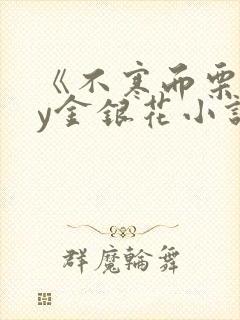 《不寒而栗
y金银花小説
群魔輪舞